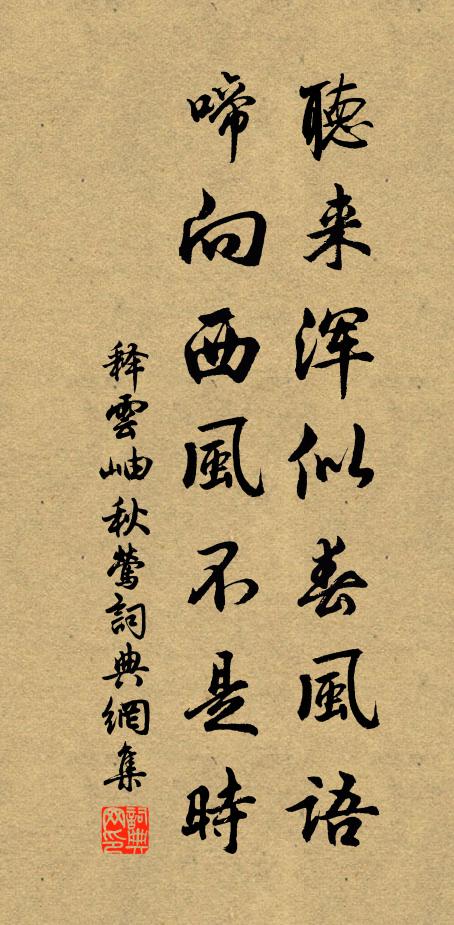 聽来渾似春風語
啼向西風不是時
释雲岫秋鶯詞典網集
詞典网印